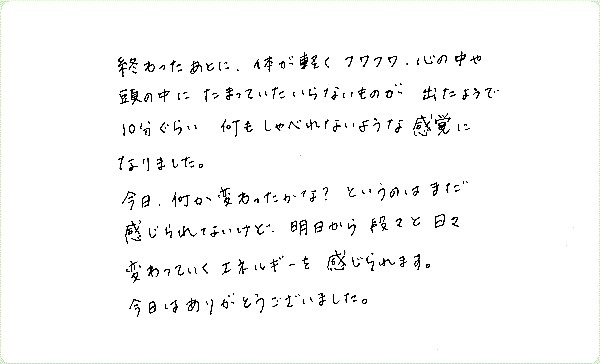 終わったあとに、体が軽くフワフワ、心の中や
頭の中に たまっていたいらないものが 出たようで
10分ぐらい 何もしゃべれないような感覚に
なりました。
今日、何か変わったかな？というのはまだ
感じられてないけど、明日から段々と日々
変わっていくエネルギーを感じられます。
今日はありがとうございました。